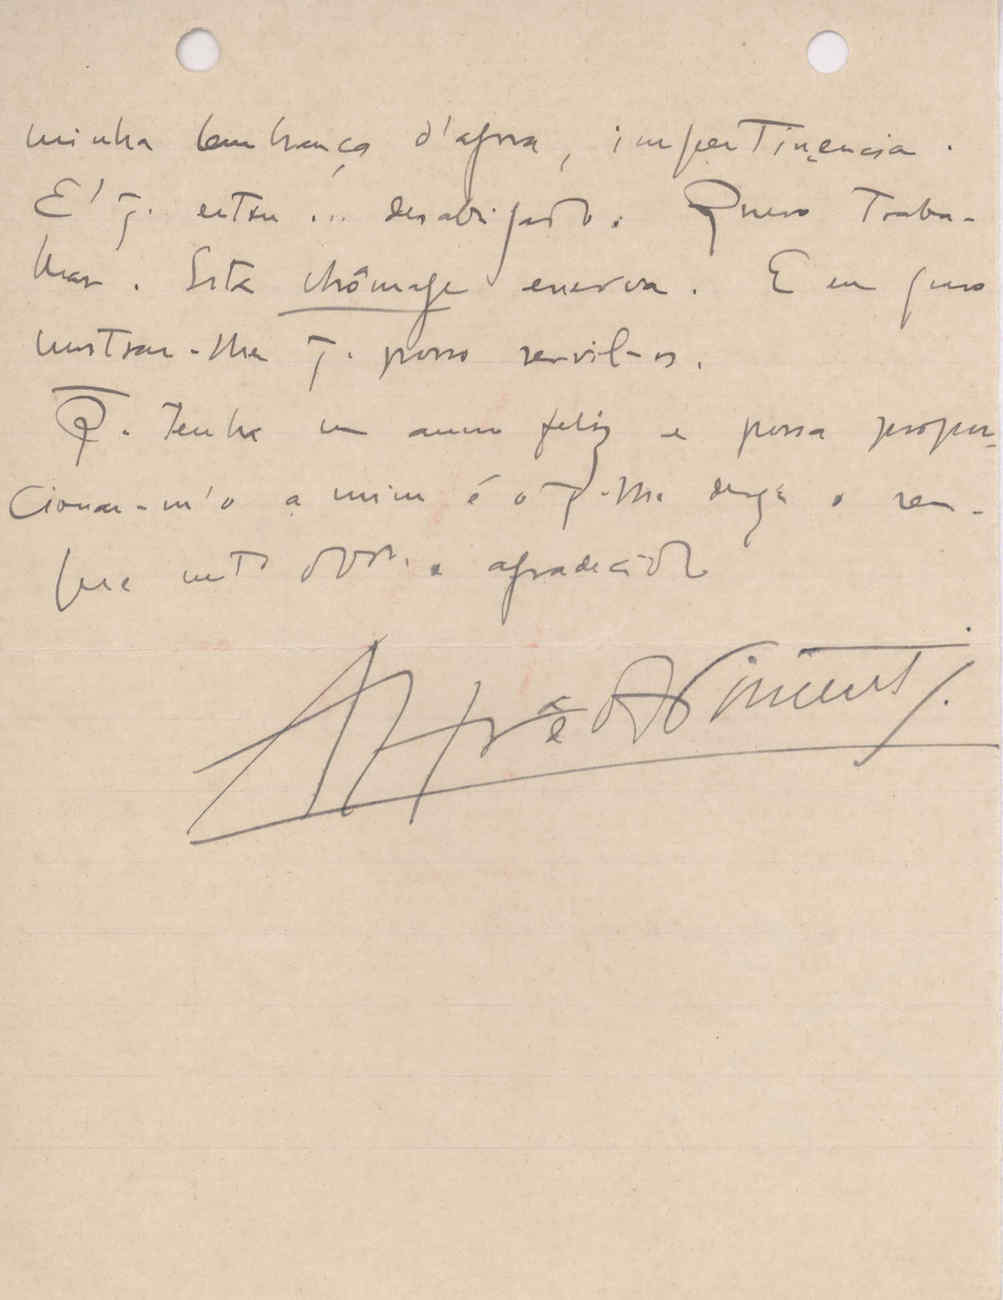 minha lembrança d'agora, impertinencia.
E' q. estou ... desabituado. Quero traba-
lhar. Esta chômage enerva. E eu quero
mostrar-lhe q. posso servil-os.
Q. tenha um anno feliz e possa propor-
cionar-m'o a mim é o q. lhe deseja o sem-
pre mtº obrº. e agradecido
Alfredo Vimenti